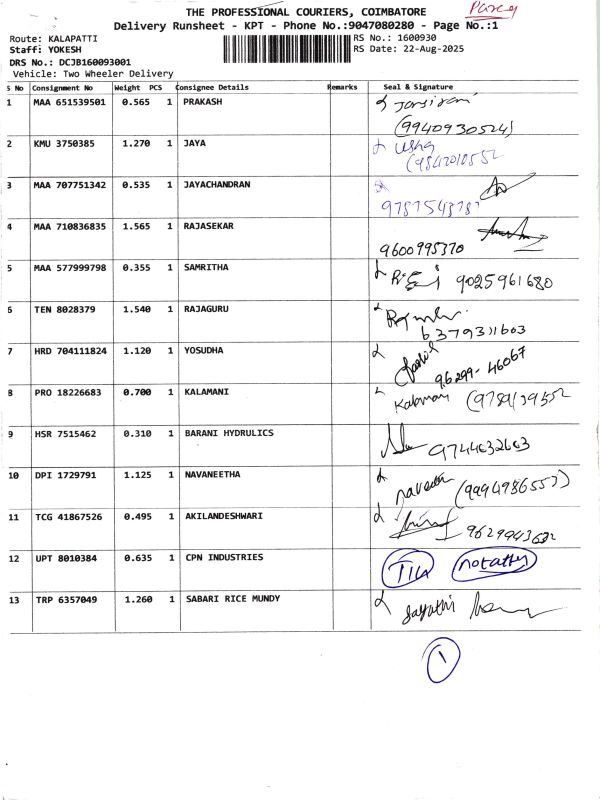 THE PROFESSIONAL COURIERS, COIMBATORE
Delivery Runsheet - KPT - Phone No.:9047080280 - Page No.:1
Route: KALAPATTI
RS No.: 1600930
Staff: YOKESH
RS Date: 22-Aug-2025
DRS No.: DCJB160093001
Vehicle: Two Wheeler Delivery
S No Consignment No Weight PCS Consignee Details Remarks Seal & Signature
1 MAA 651539501 0.565 1 PRAKASH
(9940930524)
2 KMU 3750385 1.270 1 JAYA Usha
(9842010552
3 MAA 707751342 0.535 1 JAYACHANDRAN
9787543787
4 MAA 710836835 1.565 1 RAJASEKAR
9600995370
5 MAA 577999798 0.355 1 SAMRITHA 9025961680
6 TEN 8028379 1.540 1 RAJAGURU
6379311603
7 HRD 704111824 1.120 1 YOSUDHA
96299-46067
8 PRO 18226683 0.700 1 KALAMANI Kalamani (9789139552
9 HSR 7515462 0.310 1 BARANI HYDRULICS 9744632663
10 DPI 1729791 1.125 1 NAVANEETHA naveetha (9994986553)
11 TCG 41867526 0.495 1 AKILANDESHWARI
12 UPT 8010384 0.635 1 CPN INDUSTRIES
13 TRP 6357049 1.260 1 SABARI RICE MUNDY gayathi
1